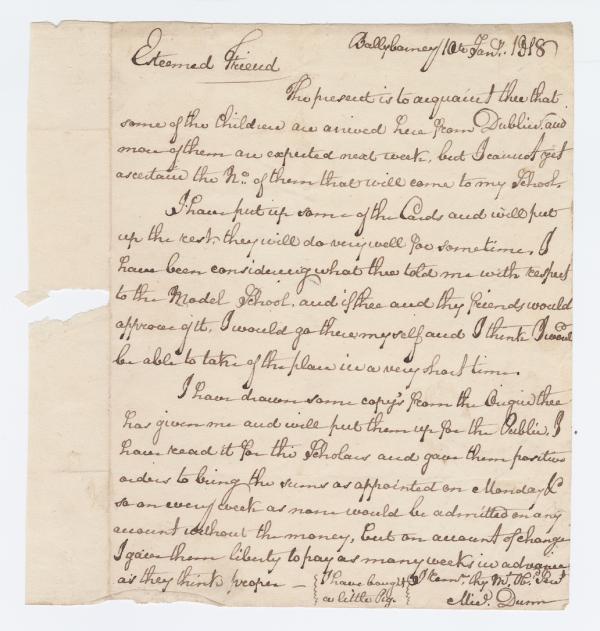 Ballybarney 10th Jany. 1818
Esteemed Friend
The present is to acquaint thee that
some of the Children are arrived here from Dublin, and
more of them are expected next week, but I cannot yet
ascertain the No. of them that will come to my School.
I have put up some of the Cards and will put
up the rest, they will do very well for some time. I
have been considering what thee told me with respect
to the Model School, and if thee and thy friends would
approve of it, I would go there myself and I think I would
be able to take of the place in a very short time.
I have drawn some copy's from the Origin thee
has given me and will put them up for the Public. I
have read it for the Scholars and gave them positive
orders to bring the sums as appointed on Monday &
so on every week as none would be admitted on any
account without the money, but on account of change
I gave them liberty to pay as many weeks in advance
as they think proper —
I have bought
a little Pig.
I remn. thy Mt. Hl. Servt
Michl. Dunn